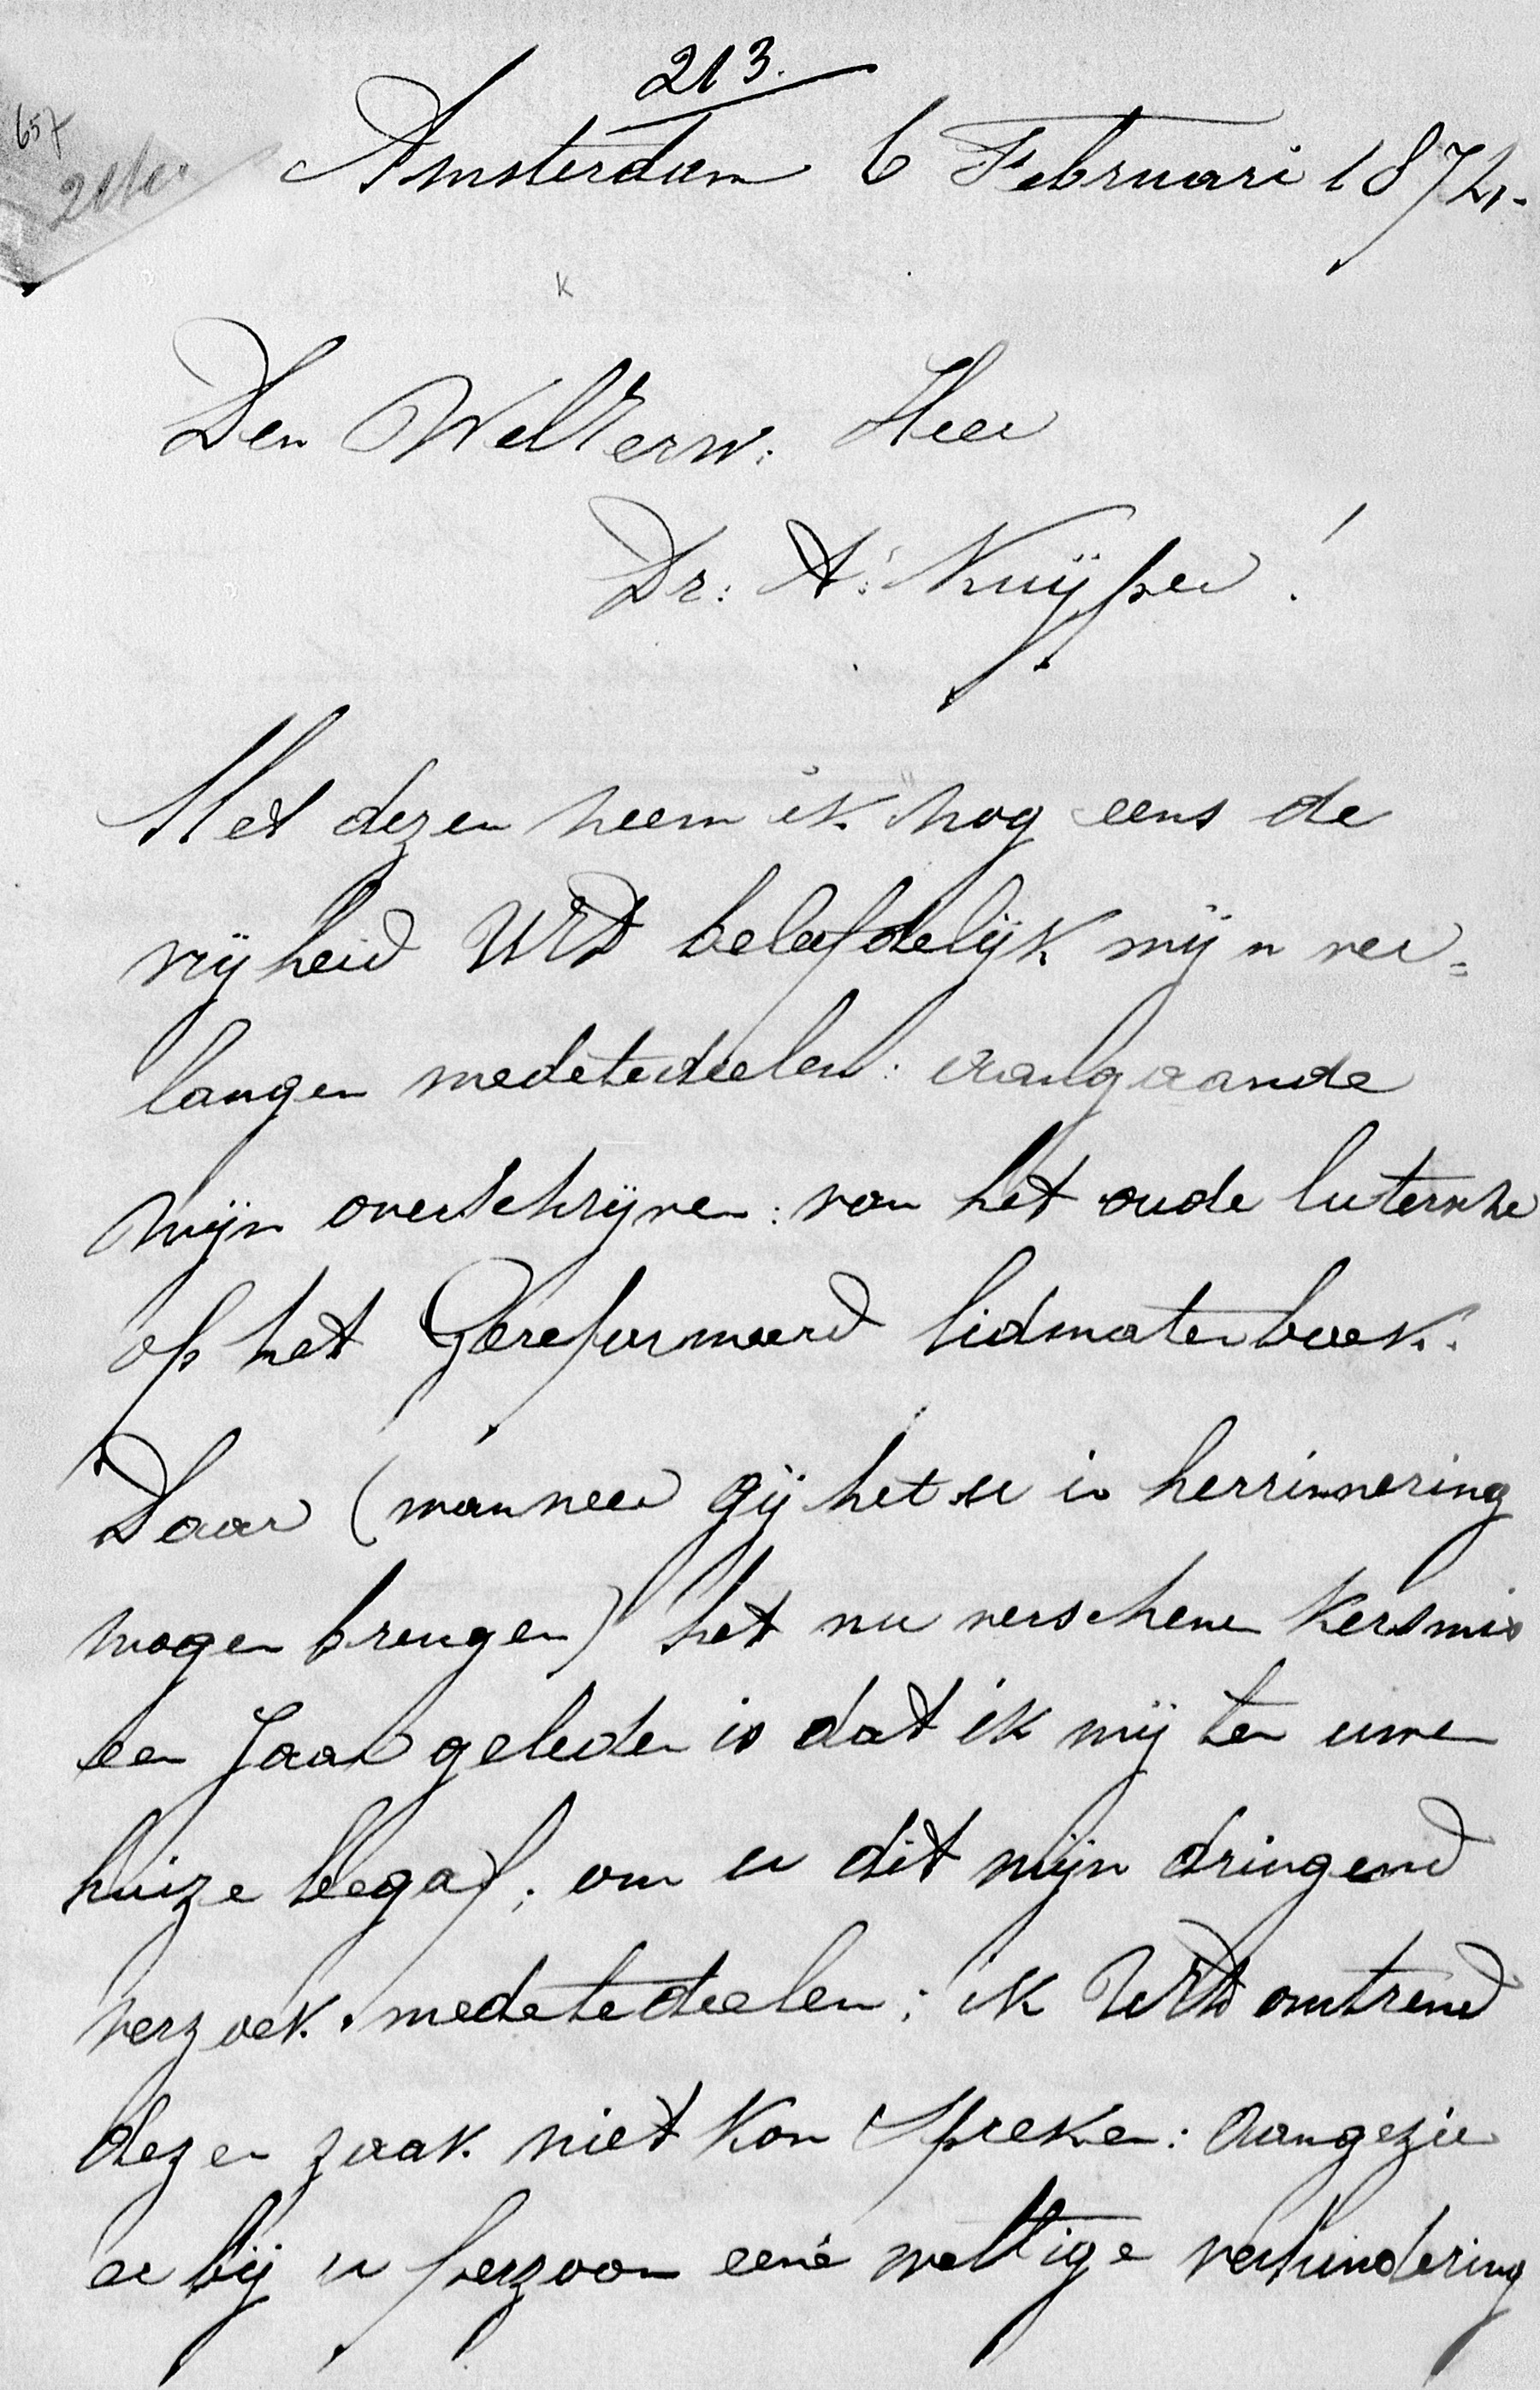 213.
657
Amsterdam 6 Februari 1874.
K
Den WelEerw: Heer
Dr: A: Kuijper!
Met dezen neem ik nog eens de
vrijheid UEd beleefdelijk mijn ver=
langen medetedeelen: aangaande
mijn overschrijven: van het oude luterse
op het Gereformeerd lidmatenboek.
Daar (wanneer gij het u in herrinnering
mogen brengen) het nu verschenen Kersmis
een Jaar geleden is dat ik mij ten uwen
huize begaf; om u dit mijn dringend
verzoek medetedeelen; ik UEd omtrend
dezen zaak niet kon spreken: aangezien
er bij u perzoon eene wettige verhindering